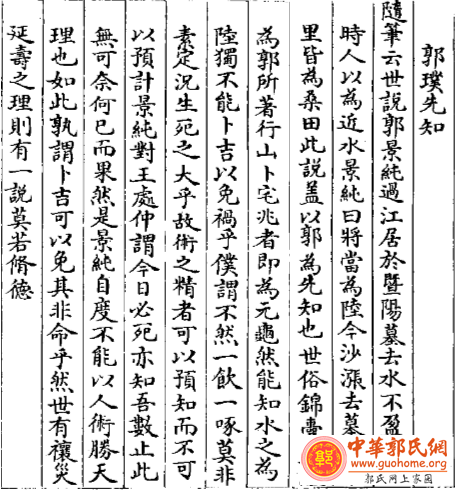 郭璞先知
隨筆云世說郭景純過江居於暨陽墓去水不盈
時人以為近水景純曰將當為陸今沙漲去墓
里皆為桑田此說蓋以郭為先知也世俗錦囊
為郭所著行山卜宅兆者即為元龜然能知水之為
陸獨不能卜吉以免禍乎僕謂不然一飲一啄莫非
素定況生死之大乎故術之精者可以預知而不可
以預計景純對王處仲謂今日必死亦知吾數止此
無可奈何已而果然是景純自度不能以人術勝天
理也如此孰謂卜吉可以免其非命乎然世有禳災
延壽之理則有一說莫若脩德
中華郭氏網
www.guohome.org
郭氏网上家园